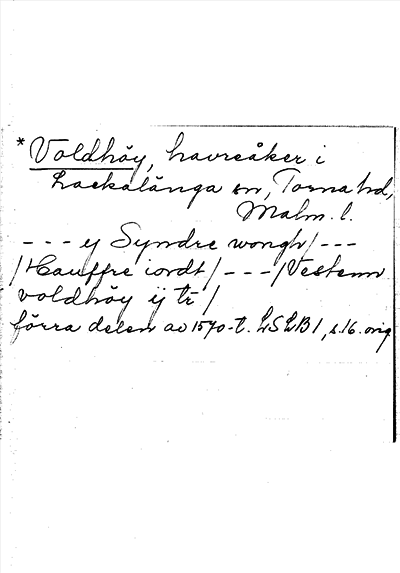 * Voldhöy, havreåker i
Lackalänga sn, Torna hd,
Malm. l.
- - - ij Syndre wongh/ - - -
/Hauffre iordt/ - - - /Vestenn
voldhöy ij tr/
förra delen av 1570-t. LSLB1, s.16. orig